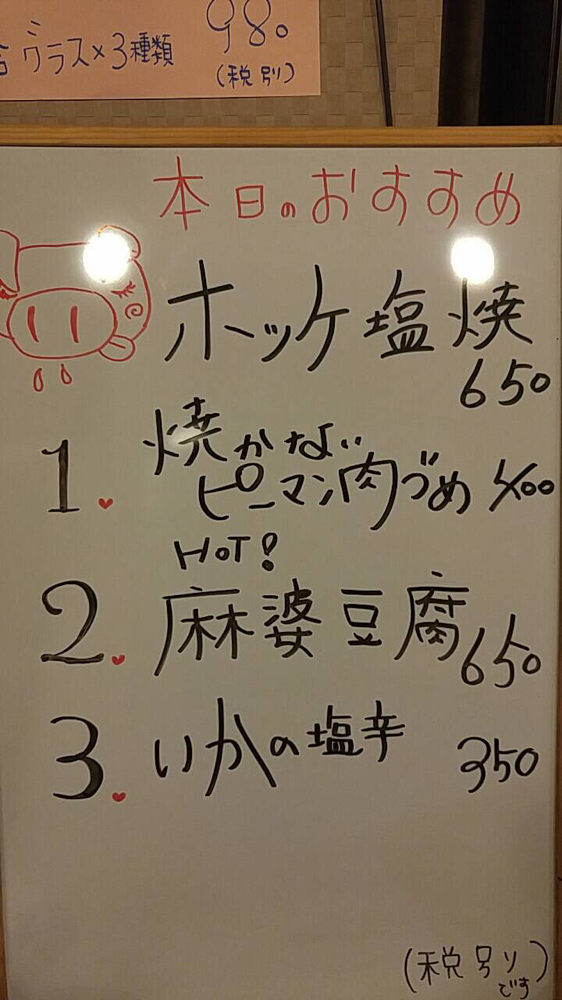 980
グラス×3種類
(税別)
本日のおすすめ
ホッケ塩焼
650
焼かない
1. ピーマン肉づめ 400
HOT!
2. 麻婆豆腐 650
3. いかの塩辛 350
(税別)
です